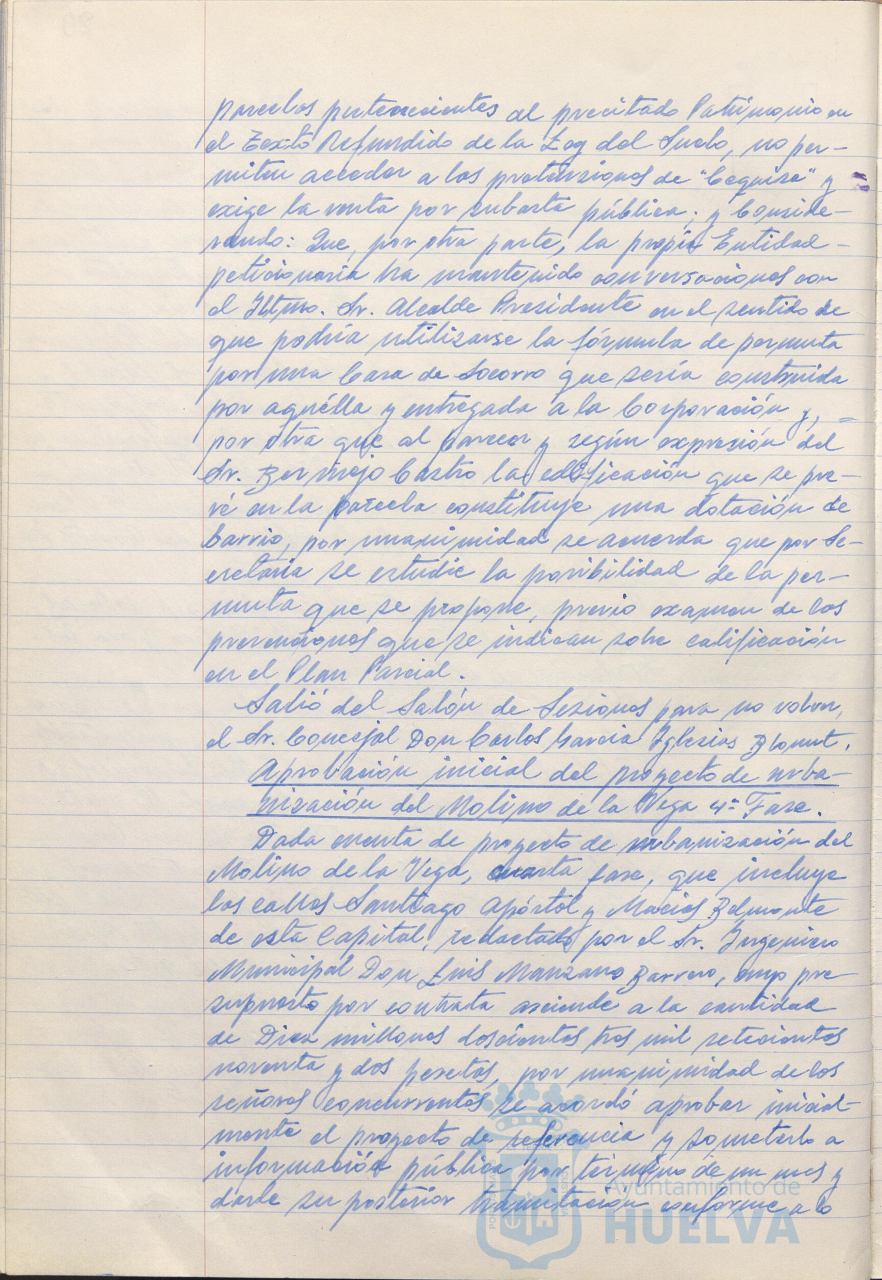 parcelas pertenecientes al precitado Patrimonio en
el Texto Refundido de la Ley del Suelo, no per-
miten acceder a las pretensiones de "Cequisa" y
exige la venta por subasta pública; y Conside-
rando: Que, por otra parte, la propia Entidad
peticionaria ha mantenido conversaciones con
el Iltmo. Sr. Alcalde Presidente en el sentido de
que podría utilizarse la fórmula de permuta
por una Casa de Socorro que sería construida
por aquélla y entregada a la Corporación y,
por otra que al parecer y según expresión del
Sr. Bermejo Castro la edificación que se pre-
vé en la parcela constituye una dotación de
barrio, por unanimidad se acuerda que por Se-
cretaría se estudie la posibilidad de la per-
muta que se propone, previo examen de las
prevenciones que se indican sobre calificación
en el Plan Parcial.
Salió del Salón de Sesiones para no volver,
el Sr. Concejal Don Carlos García Iglesias
Aprobación inicial del proyecto de urba-
nización del Molino de la Vega 4ª Fase.
Dada cuenta de proyecto de urbanización del
Molino de la Vega, cuarta fase, que incluye
las calles Santiago Apóstol y Macías Belmonte
de esta Capital, redactado por el Sr. Ingeniero
Municipal Don Luis Manzano Barrero, cuyo pre-
supuesto por contrata asciende a la cantidad
de Diez millones doscientas tres mil setecientas
noventa y dos pesetas, por unanimidad de los
señores concurrentes se acordó aprobar inicial-
mente el proyecto de referencia y someterlo a
información pública por término de un mes y
darle su posterior tramitación conforme a lo
Ayuntamiento de
HUELVA